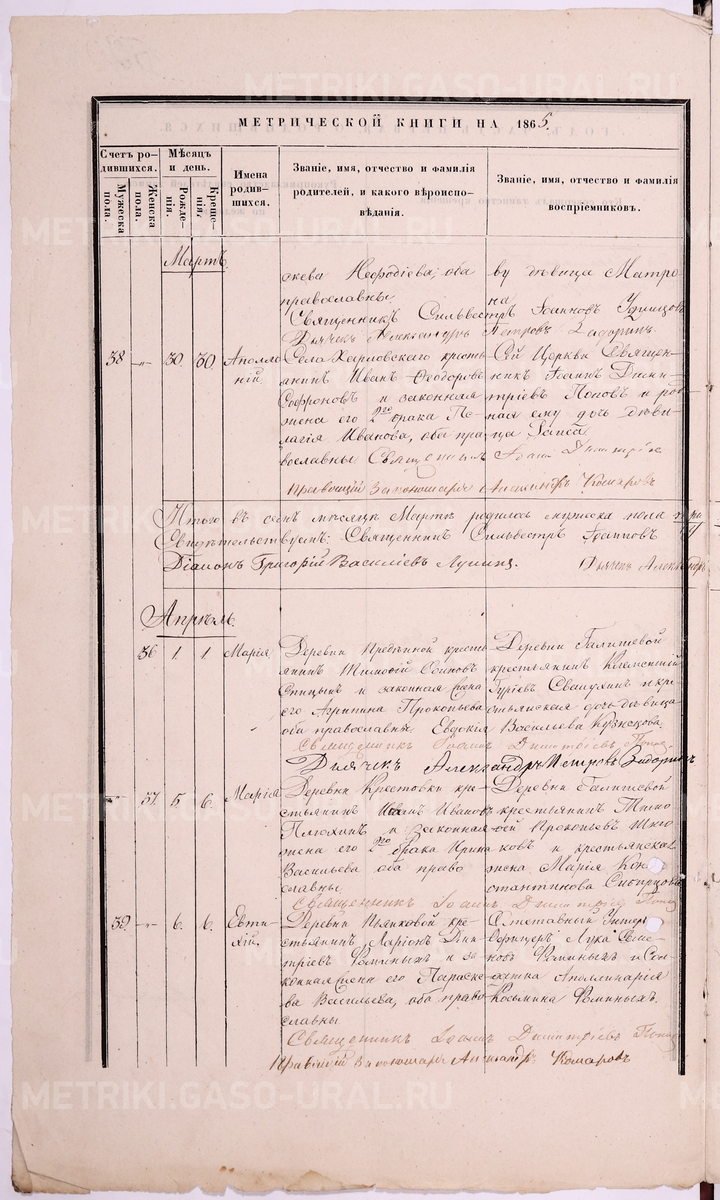 METRIKI.GASO-URAL.RU
МЕТРИЧЕСКОЙ КНИГИ НА 1865.
Счетъ родившихся.
Мужеска пола.
Женска пола.
Мѣсяцъ и день.
Рожденія.
Крещенія.
Имена родившихся.
Званіе, имя, отчество и фамилія родителей, и какого вѣроисповѣданія.
Званіе, имя, отчество и фамилія воспріемниковъ.
Мартъ.
скева Нефодіева, оба
православны
ву дѣвица Матро
на
Священникъ Сильвестръ Іоанновъ
Дьячекъ Александръ Петровъ
38 -"- 30. 30. Аполлоній.
Села Харловскаго кресть
янинъ Иванъ Ѳеодоровъ
Софроновъ и законная
жена его 2го брака Пе
лагія Иванова, оба пра
вославны
Сей Церкви Священ-
никъ Іоаннъ Дими
тріевъ Поповъ и род
ная ему дочь дѣви
ца
Священникъ Іоаннъ Димитріевъ
Правящій Александръ Комаровъ
Итого въ семъ мѣсяцѣ Мартѣ родилось мужеска пола
Свидѣтельствуемъ: Священникъ Сильвестръ Іоанновъ
Діаконъ Григорій Василіевъ
Дьячекъ Александръ
Апрѣль.
36 1. 1. Марія
Деревни кресть
янинъ Тимофій
Спицынъ и законная жена
его Агрипина Прокопьева
оба православны
Деревни Галишевой
крестьянинъ Климентій
Гуріевъ и кре
стьянская дочь дѣвица
Евдокія Васильева Кузнецова.
Священникъ Іоаннъ Димитріевъ Попов
Дьячекъ Александръ Петровъ
37. 5. 6. Марія
Деревни Крестовки кре-
стьянинъ Иванъ Ивановъ
Плюхинъ и законная
жена его 2го брака Ирина
Васильева оба право
славны
Деревни Галишевой
крестьянинъ Тимо
фей Прокопьевъ
и крестьянская
жена Марія Кон
стантинова Сибирцова
Священникъ Іоаннъ Димитріевъ Попов
39. -"- 6. 6. Евти
хій.
Деревни кре-
стьянинъ Ларіонъ Дми
тріевъ Фоминыхъ и за
конная жена его Параске
ва Васильева, оба право
славны
Отставный Унтеръ
Офицеръ Лука Семе
новъ Фоминыхъ и Сол
датка Аполлинарія
Косьмина Фоминыхъ.
Священникъ Іоаннъ Димитріевъ Попов
Правящій Александръ Комаровъ
METRIKI.GASO-URAL.RU